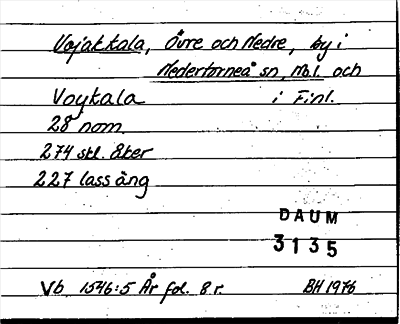 Vojakkala, Övre och Nedre, by i
Nedertorneå sn, Nbl. och
Voykala i Finl.
28 nom.
274 skl. åker
227 lass äng
DAUM
3135
Vb 1546:5 År fol. 8 r. BH 1976